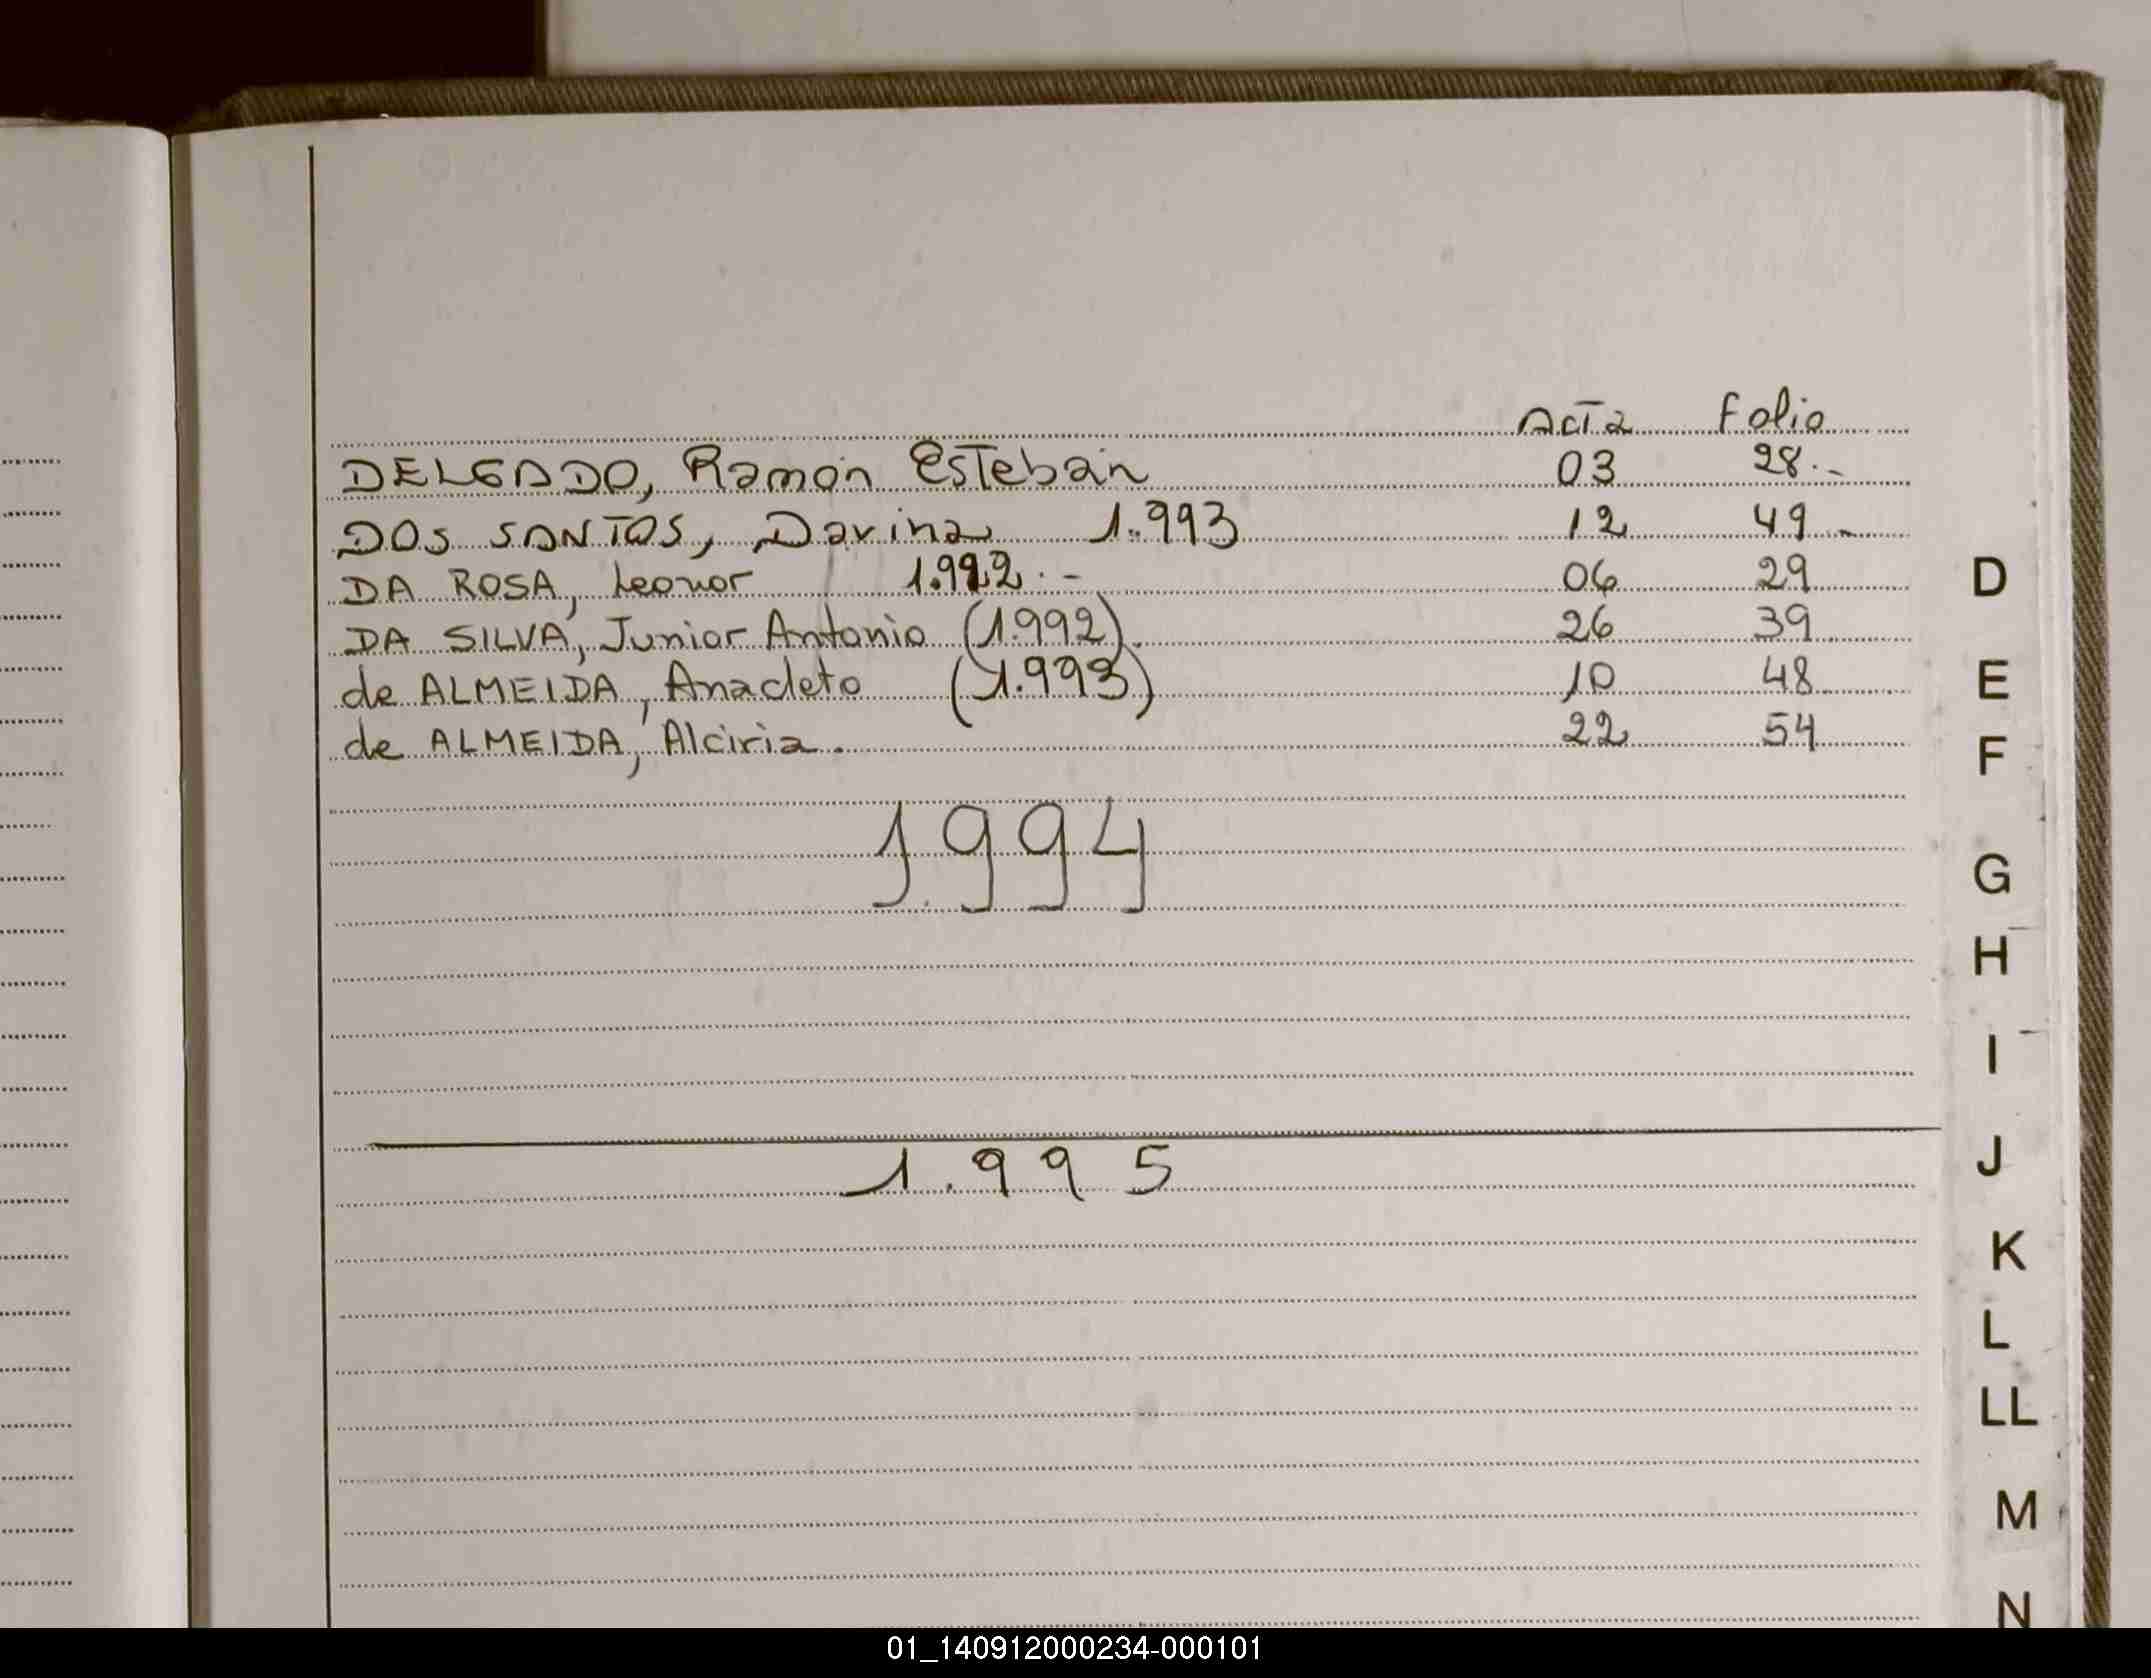 Acta Folio
DELGADO, Ramón Esteban 03 28.-
DOS SANTOS, Davina 1.993 12 49.-
DA ROSA, Leonor 1.992.- 06 29
DA SILVA, Junior Antonio (1.992). 26 39
de ALMEIDA, Anacleto (1.993) 10 48
de ALMEIDA, Alciria. 22 54
1.994
1.995
D
E
F
G
H
I
J
K
L
LL
M
N
01_140912000234-000101